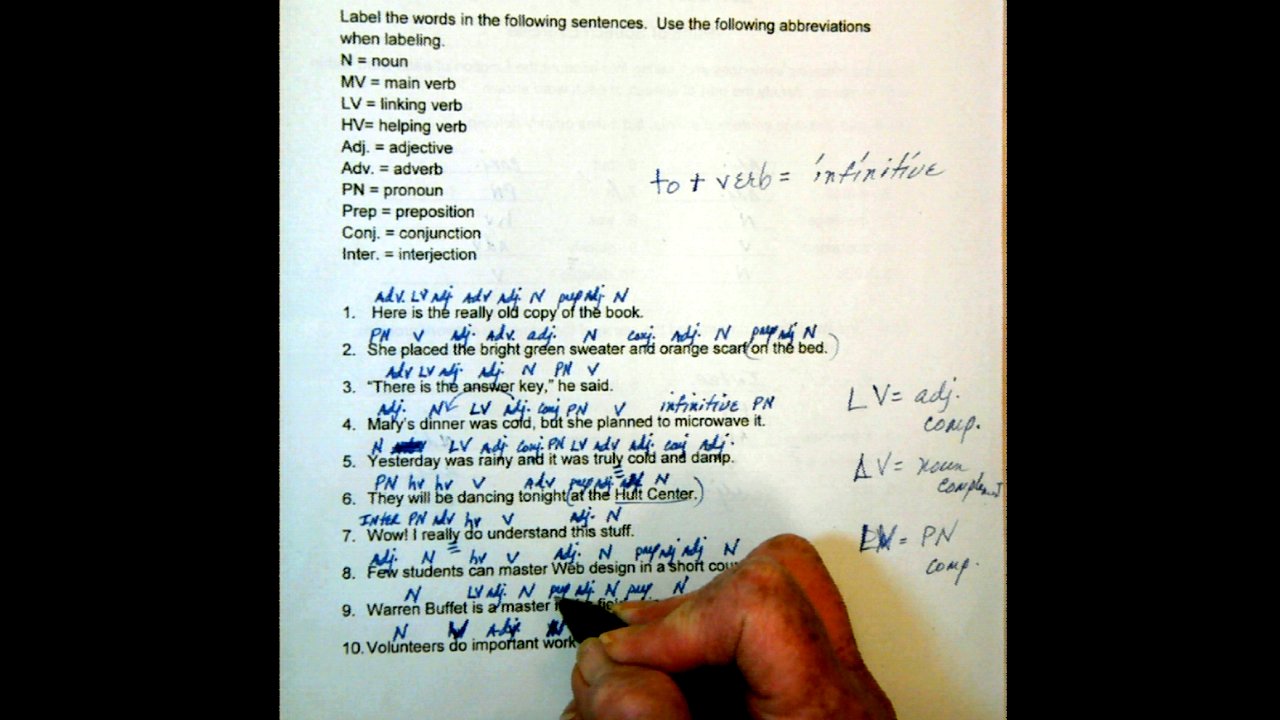 Label the words in the following sentences. Use the following abbreviations
when labeling.
N = noun
MV = main verb
LV = linking verb
HV= helping verb
Adj. = adjective
Adv. = adverb
PN = pronoun
Prep = preposition
Conj. = conjunction
Inter. = interjection
to + verb = infinitive
Adv. LV Adj Adv Adj. N prep Adj. N
1. Here is the really old copy of the book.
PN V Adj. Adv. adj. N conj. Adj. N prep adj N
2. She placed the bright green sweater and orange scarf (on the bed.)
Adv LV Adj. Adj. N PN V
3. "There is the answer key," he said.
Adj. N LV Adj. conj PN V infinitive PN
4. Mary's dinner was cold, but she planned to microwave it.
N LV Adj conj. PN LV Adv Adj. conj Adj.
5. Yesterday was rainy and it was truly cold and damp.
PN hv hv V Adv prep adj N
6. They will be dancing tonight (at the Hult Center.)
Inter PN adv hv V Adj. N
7. Wow! I really do understand this stuff.
Adj. N hv V Adj. N prep adj Adj N
8. Few students can master Web design in a short
N LV adj. N prep adj. N prep N
9. Warren Buffet is a master
N Adj.
10. Volunteers do important work
LV = adj.
comp.
LV = noun
complement
LV = PN
comp.